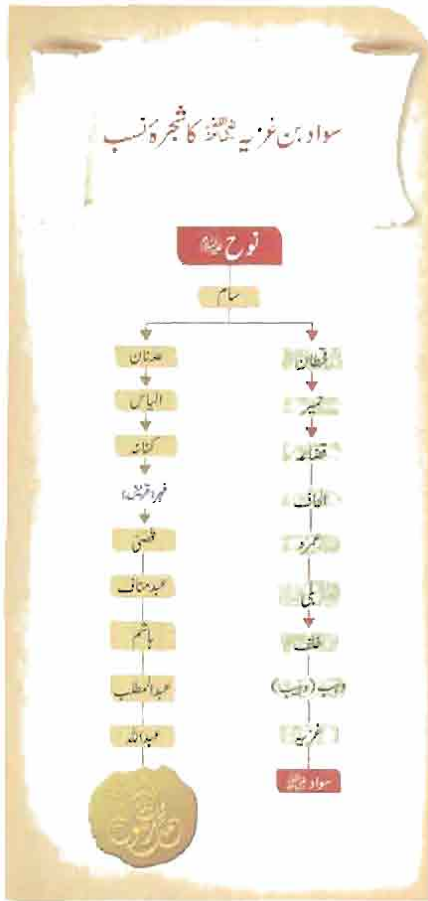 سواد بن غزیہ ؓ کا شجرۂ نسب
نوح علیہ السلام
سام
قحطان
حمیر
قضاعہ
الحاف
عمرو
بلی
خلف
وہب (وہیب)
غزیہ
سواد ؓ
عدنان
الیاس
کنانہ
فہر (قریش)
قصی
عبدمناف
ہاشم
عبدالمطلب
عبداللہ